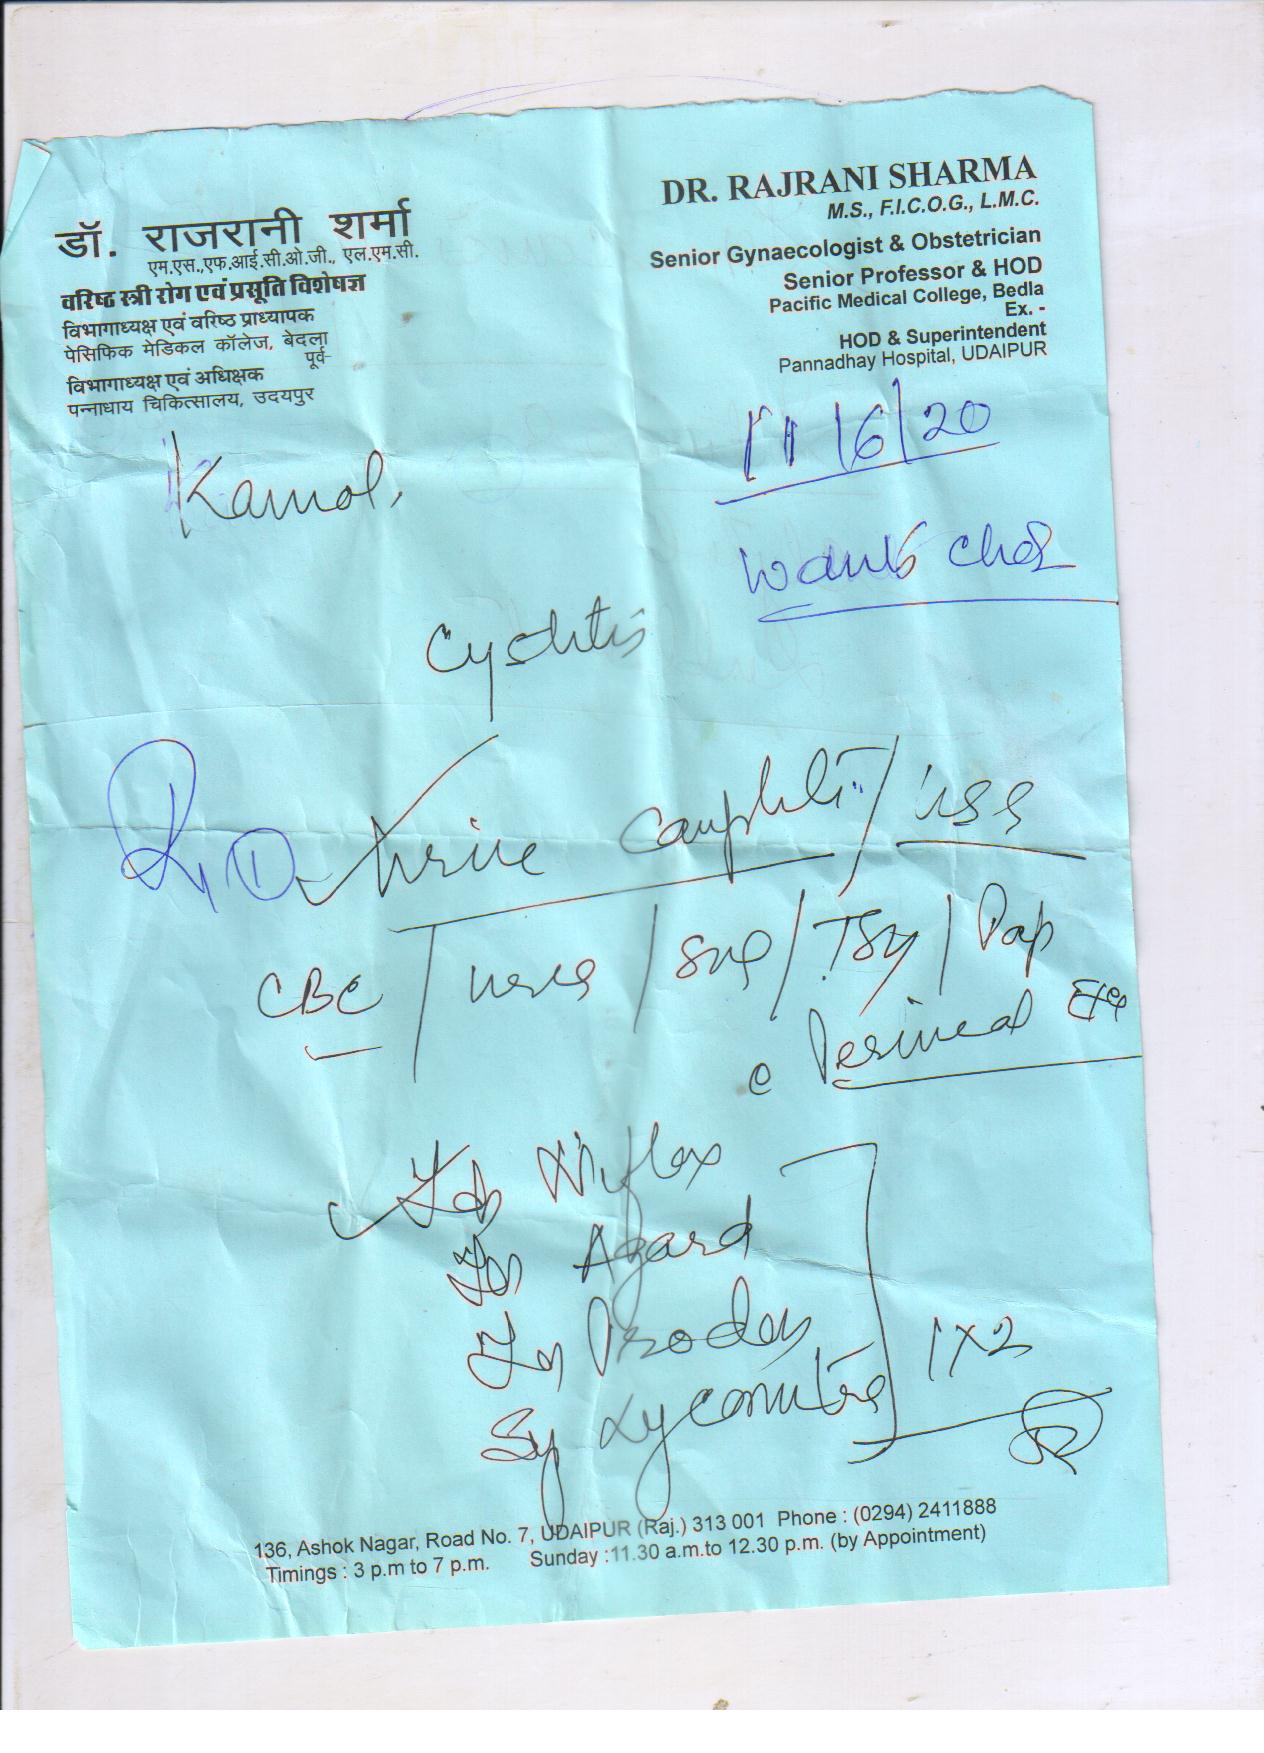 डॉ. राजरानी शर्मा
एम.एस.,एफ.आई.सी.ओ.जी., एल.एम.सी.
वरिष्ठ स्त्री रोग एवं प्रसूति विशेषज्ञ
विभागाध्यक्ष एवं वरिष्ठ प्राध्यापक
पेसिफिक मेडिकल कॉलेज, बेदला
पूर्व-
विभागाध्यक्ष एवं अधिक्षक
पन्नाधाय चिकित्सालय, उदयपुर
DR. RAJRANI SHARMA
M.S., F.I.C.O.G., L.M.C.
Senior Gynaecologist & Obstetrician
Senior Professor & HOD
Pacific Medical College, Bedla
Ex. -
HOD & Superintendent
Pannadhay Hospital, UDAIPUR
11/6/20
Kamal.
wants
Cystitis
Rx ① Urine Complete /
CBC / / / TSH / Pap
c Perineal
Tab
Tab Agard
Tab
Sy
1x2
136, Ashok Nagar, Road No. 7, UDAIPUR (Raj.) 313 001 Phone : (0294) 2411888
Timings : 3 p.m to 7 p.m. Sunday :11.30 a.m.to 12.30 p.m. (by Appointment)